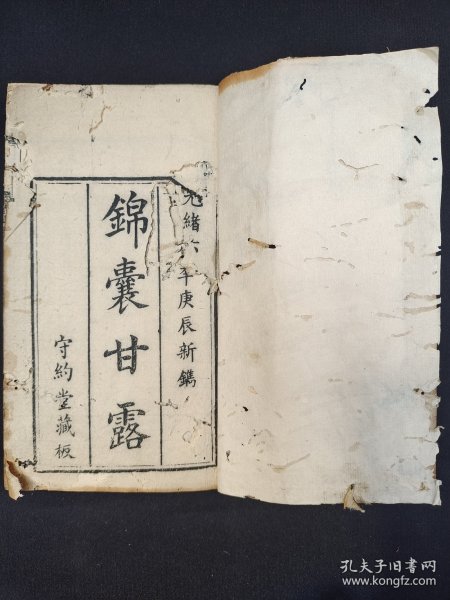 光緒六年庚辰新鐫
錦囊甘露
守約堂藏板
孔夫子旧书网
www.kongfz.com